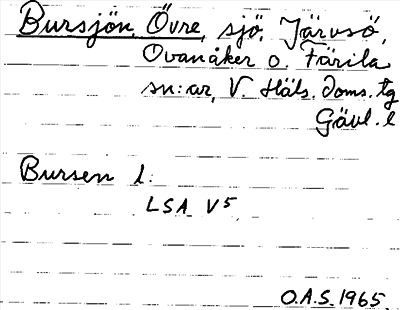 Bursjön, Övre, sjö, Järvsö,
Ovanåker o. Färila
sn:ar, V. Häls. Doms. tg
Gävl. l
Bursen l:
LSA V5
O.A.S. 1965.